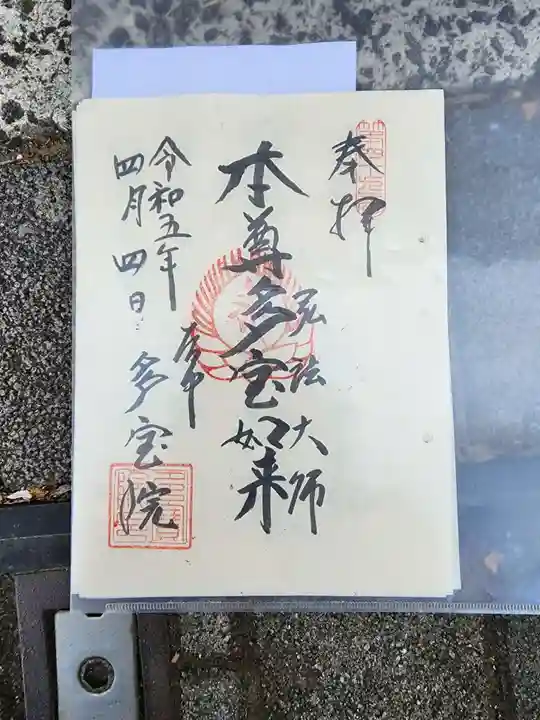 奉拝
弘法大師
本尊多宝如来
令和五年
四月四日
多宝院